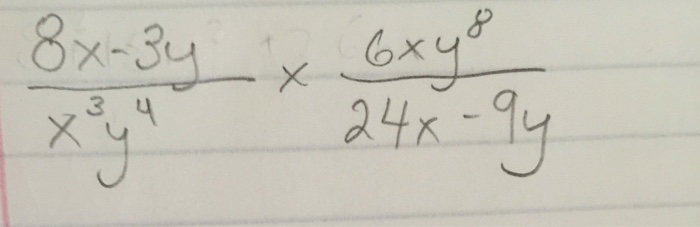 8x-3y / x³y⁴ × 6xy⁸ / 24x-9y